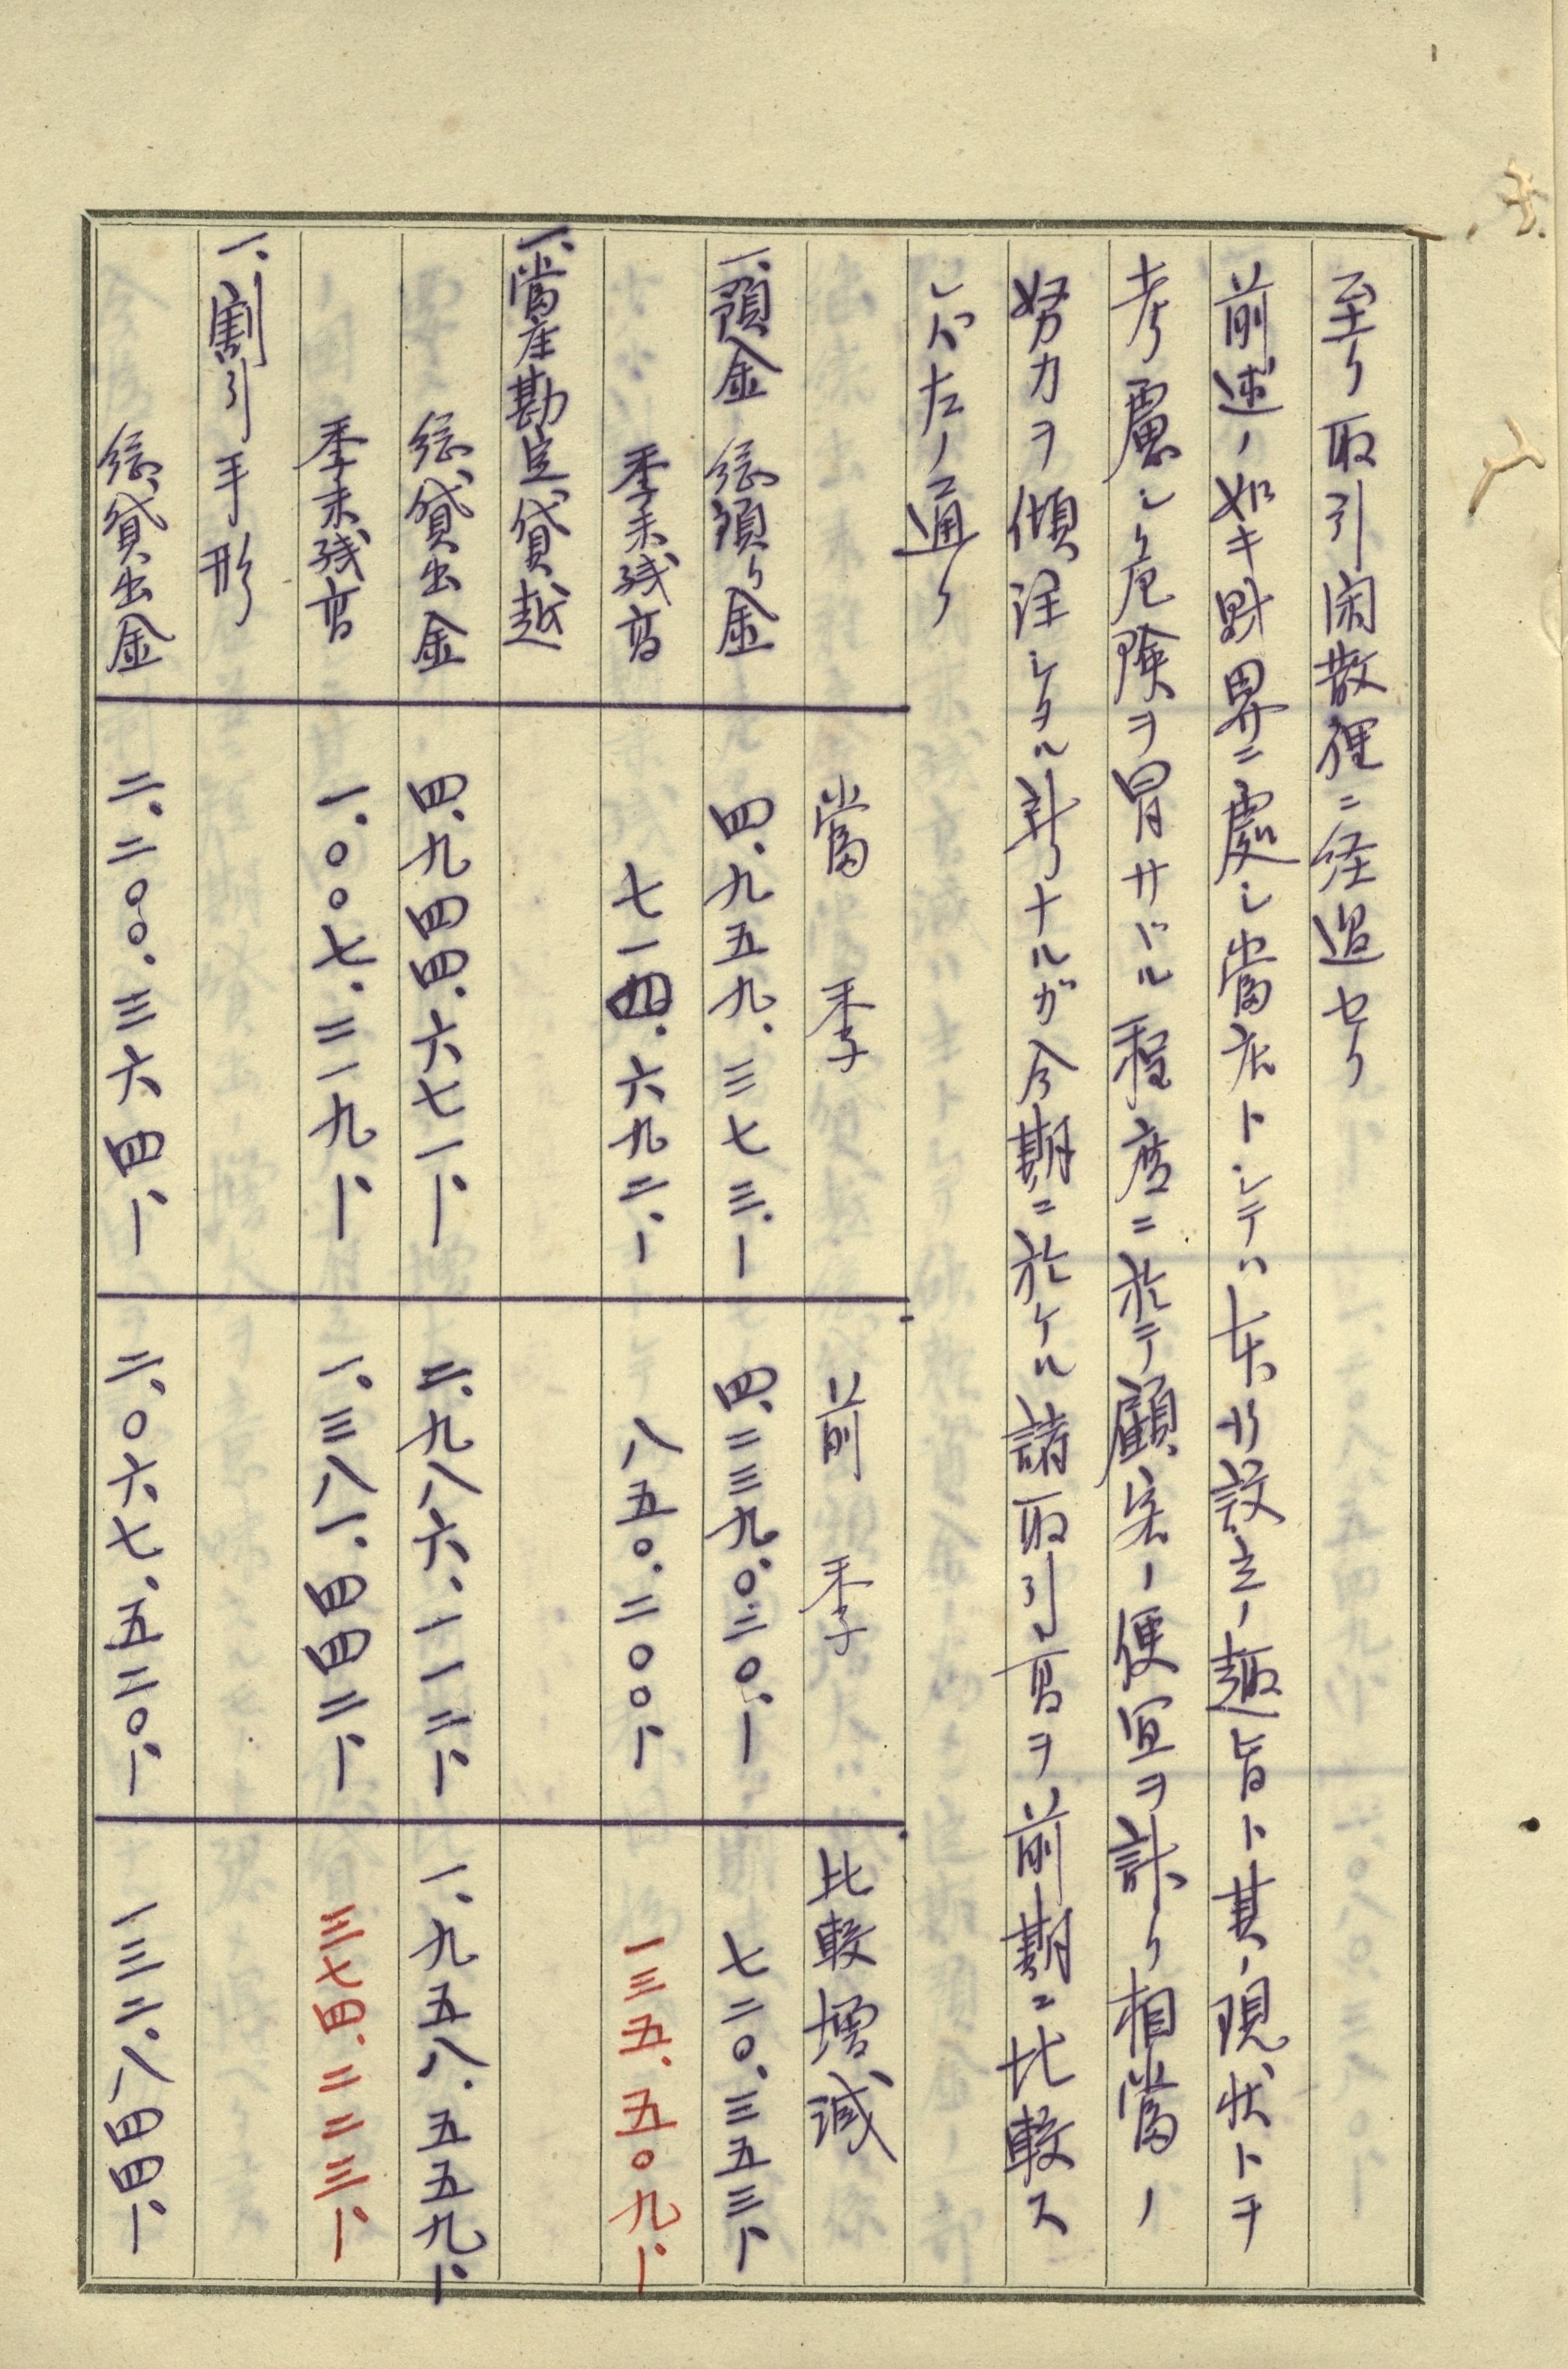 至リ取引閑散裡ニ経過セリ
前述ノ如キ財界ニ處シ當店トシテハ本行設立ノ趣旨ト其ノ現状トヲ
考慮シ危険ヲ冒サヾル程度ニ於テ顧客ノ便宜ヲ計リ相當ノ
努力ヲ傾注シタル許リナルガ今期ニ於ケル諸取引高ヲ前期ニ比較ス
レバ左ノ通リ
當季 前季 比較増減
一、預金 総預リ金 四、九五九、三七三、ー 四、二三九、〇二〇、ー 七二〇、三五三、ー
季末残高 七一四、六九二、ー 八五〇、二〇〇、ー 一三五、五〇九、ー
一、當座勘定貸越
総貸出金 四、九四四、六七一、ー 二、九八六、一一二、ー 一、九五八、五五九、ー
季末残高 一、〇〇七、二一九、ー 一、三八一、四四二、ー 三七四、二二三、ー
一、割引手形
総貸出金 二、二〇〇、三六四、ー 二、〇六七、五二〇、ー 一三二、八四四、ー